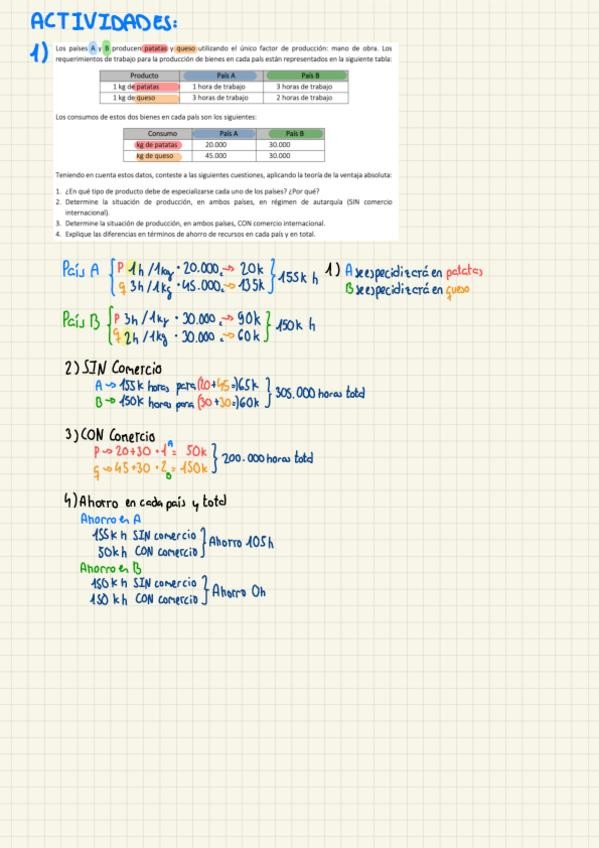 ACTIVIDADES:
1) Los países A y B producen patatas y queso utilizando el único factor de producción: mano de obra. Los
requerimientos de trabajo para la producción de bienes en cada país están representados en la siguiente tabla:
Producto País A País B
1 kg de patatas 1 hora de trabajo 3 horas de trabajo
1 kg de queso 3 horas de trabajo 2 horas de trabajo
Los consumos de estos dos bienes en cada país son los siguientes:
Consumo País A País B
kg de patatas 20.000 30.000
kg de queso 45.000 30.000
Teniendo en cuenta estos datos, conteste a las siguientes cuestiones, aplicando la teoría de la ventaja absoluta:
1. ¿En qué tipo de producto debe de especializarse cada uno de los países? ¿Por qué?
2. Determine la situación de producción, en ambos países, en régimen de autarquía (SIN comercio
internacional).
3. Determine la situación de producción, en ambos países, CON comercio internacional.
4. Explique las diferencias en términos de ahorro de recursos en cada país y en total.
País A { P 1h/1kg · 20.000 → 20k
q 3h/1kg · 45.000 → 135k } 155k h
1) A se especializará en patatas
B se especializará en queso
País B { P 3h/1kg · 30.000 → 90k
q 2h/1kg · 30.000 → 60k } 150k h
2) SIN Comercio
A → 155k horas para (20+45=)65k
B → 150k horas para (30+30=)60k } 305.000 horas total
3) CON Comercio
P → 20+30 · 1A = 50k
q → 45+30 · 2B = 150k } 200.000 horas total
4) Ahorro en cada país y total
Ahorro en A
155k h SIN comercio
50k h CON comercio } Ahorro 105h
Ahorro en B
150k h SIN comercio
150 k h CON comercio } Ahorro 0h